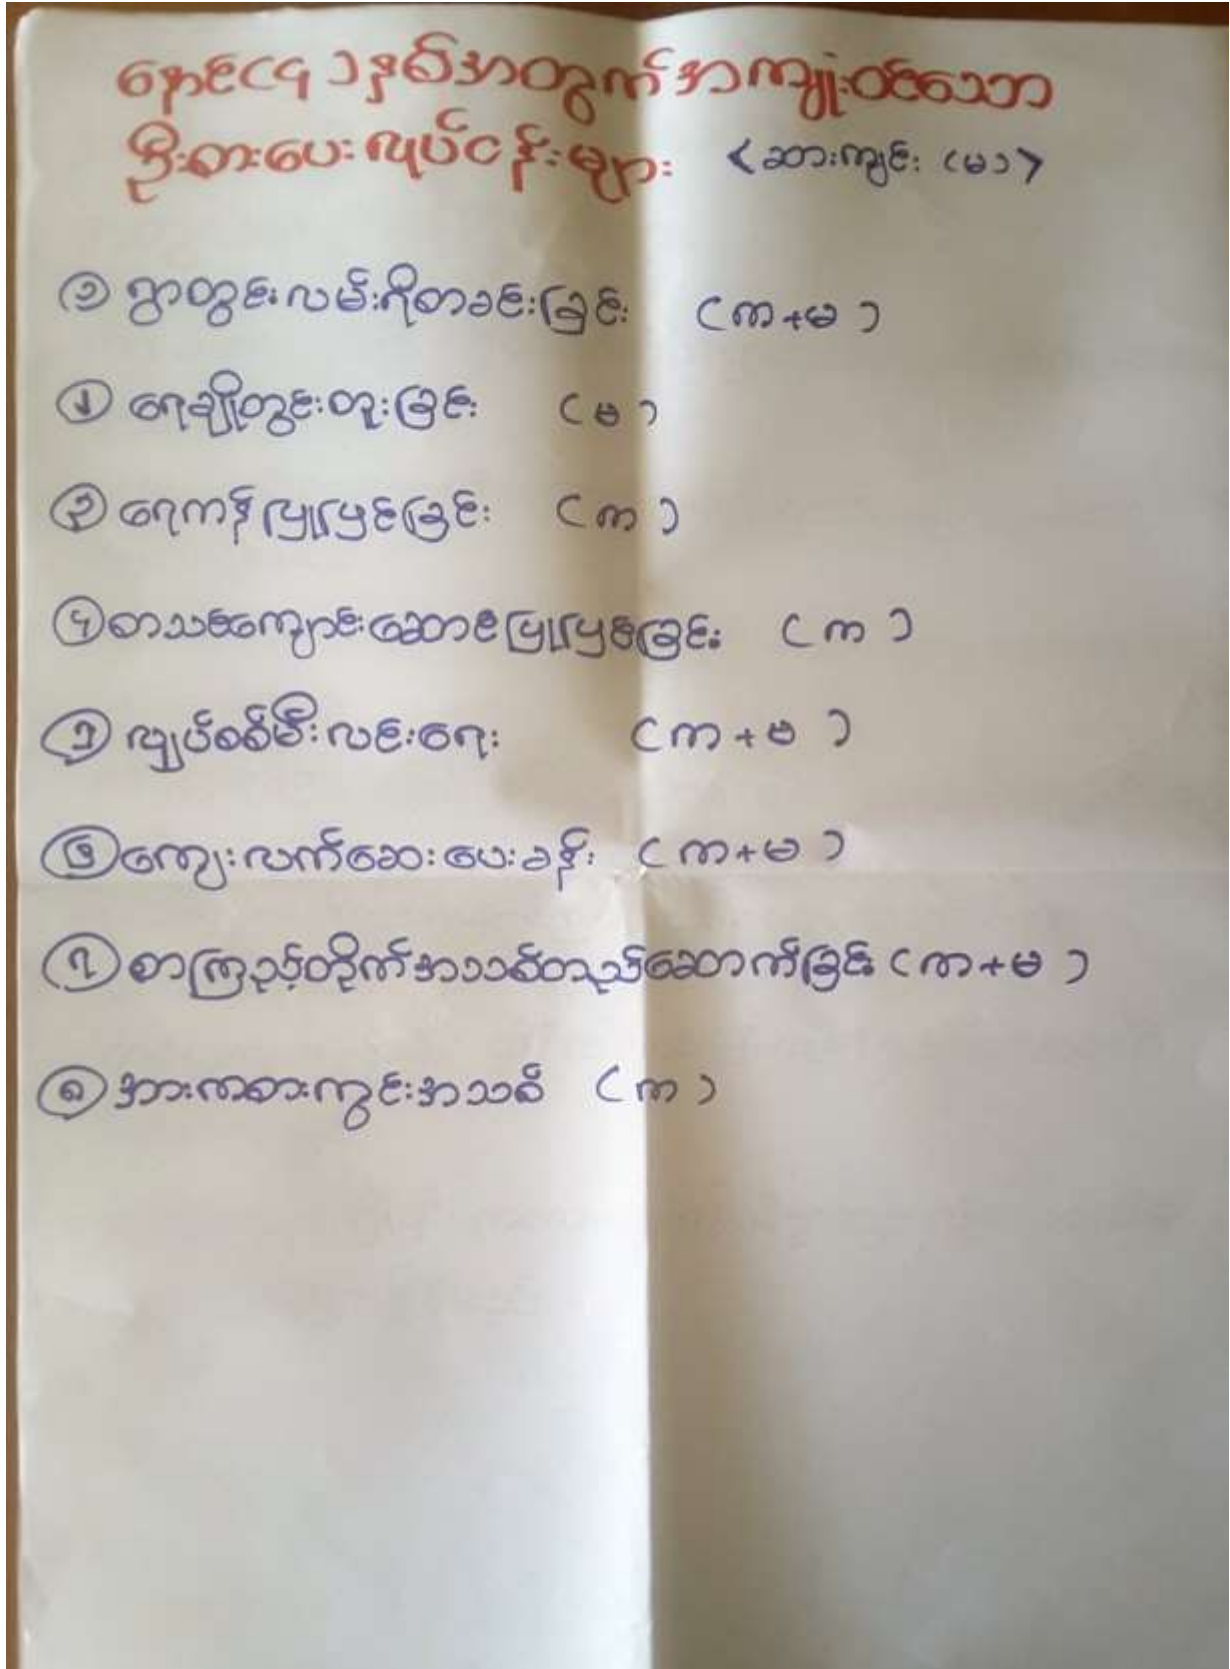 နောင်(၄)နှစ်အတွက်အကျုံးဝင်သော
ဦးစားပေးလုပ်ငန်းများ <ဆားကျင်း (မ)>
၁ ရွာတွင်းလမ်းဂိုတခင်းခြင်း (က+မ)
၂ ရေချိုတွင်းတူးခြင်း (မ)
၃ ရေကန်ပြုပြင်ခြင်း (က)
၄ စာသင်ကျောင်းဆောင်ပြုပြင်ခြင်း (က)
၅ လျှပ်စစ်မီးလင်းရေး (က+မ)
၆ ကျေးလက်ဆေးပေးခန်း (က+မ)
၇ စာကြည့်တိုက်အသစ်တည်ဆောက်ခြင်း (က+မ)
၈ အားကစားကွင်းအသစ် (က)